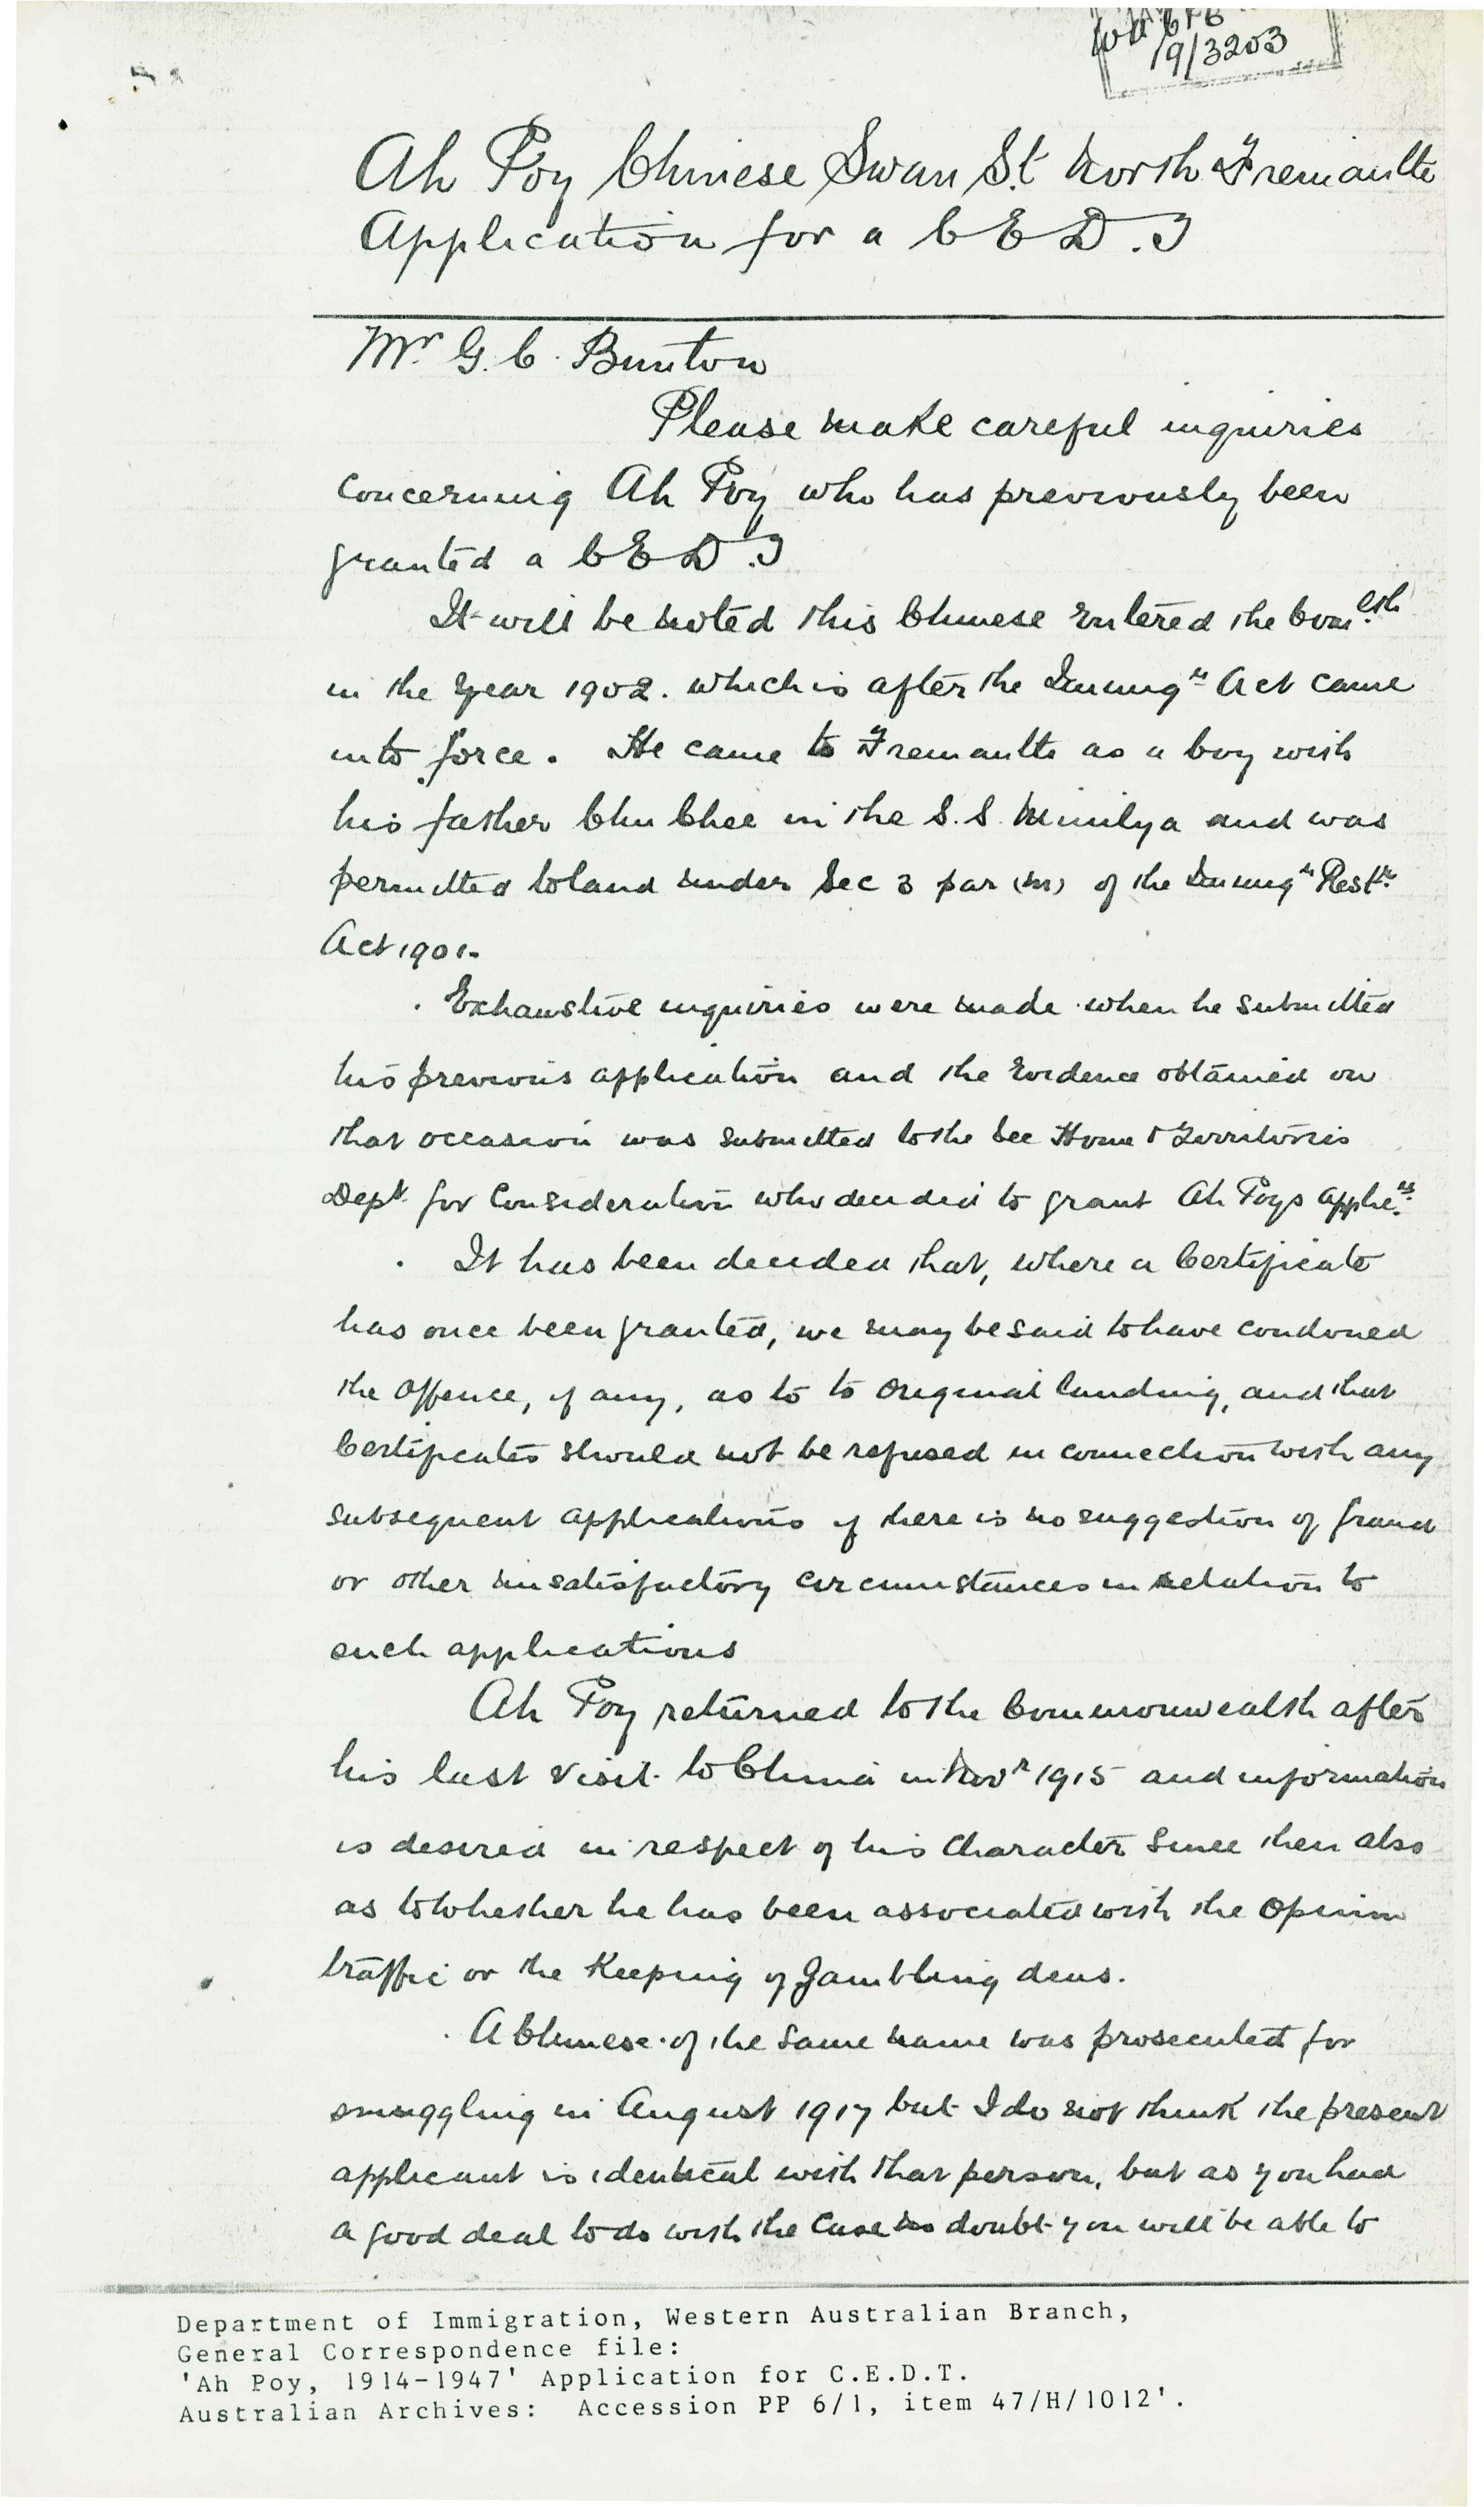 19/3203
Ah Poy Chinese Swan St North Fremantle
Application for a C E D.T
Mr. G. C. Bunton
Please make careful inquiries
concerning Ah Poy who has previously been
granted a C E D.T
It will be noted this Chinese entered the Com.elth
in the year 1902. which is after the Immign Act came
into force. He came to Fremantle as a boy with
his father Chu Chee in the S.S. Minilya and was
permitted to land under Sec 3 par (m) of the Immign Restn.
Act 1901.
Exhaustive inquiries were made when he submitted
his previous application and the evidence obtained on
that occasion was submitted to the Sec Home & Territories
Dept. for consideration who decided to grant Ah Poys Applicn.
It has been decided that, where a Certificate
has once been granted, we may be said to have condoned
the offence, if any, as to to original landing, and that
Certificates should not be refused in connection with any
subsequent applications if there is no suggestion of fraud
or other unsatisfactory circumstances in relation to
such applications
Ah Poy returned to the Commonwealth after
his last visit to China in Novr 1915 and information
is desired in respect of his character since then also
as to whether he has been associated with the opium
traffic or the keeping of gambling dens.
A Chinese of the same name was prosecuted for
smuggling in August 1917 but I do not think the present
applicant is identical with that person, but as you had
a good deal to do with the case no doubt you will be able to
Department of Immigration, Western Australian Branch,
General Correspondence file:
'Ah Poy, 1914-1947' Application for C.E.D.T.
Australian Archives: Accession PP 6/1, item 47/H/1012'.